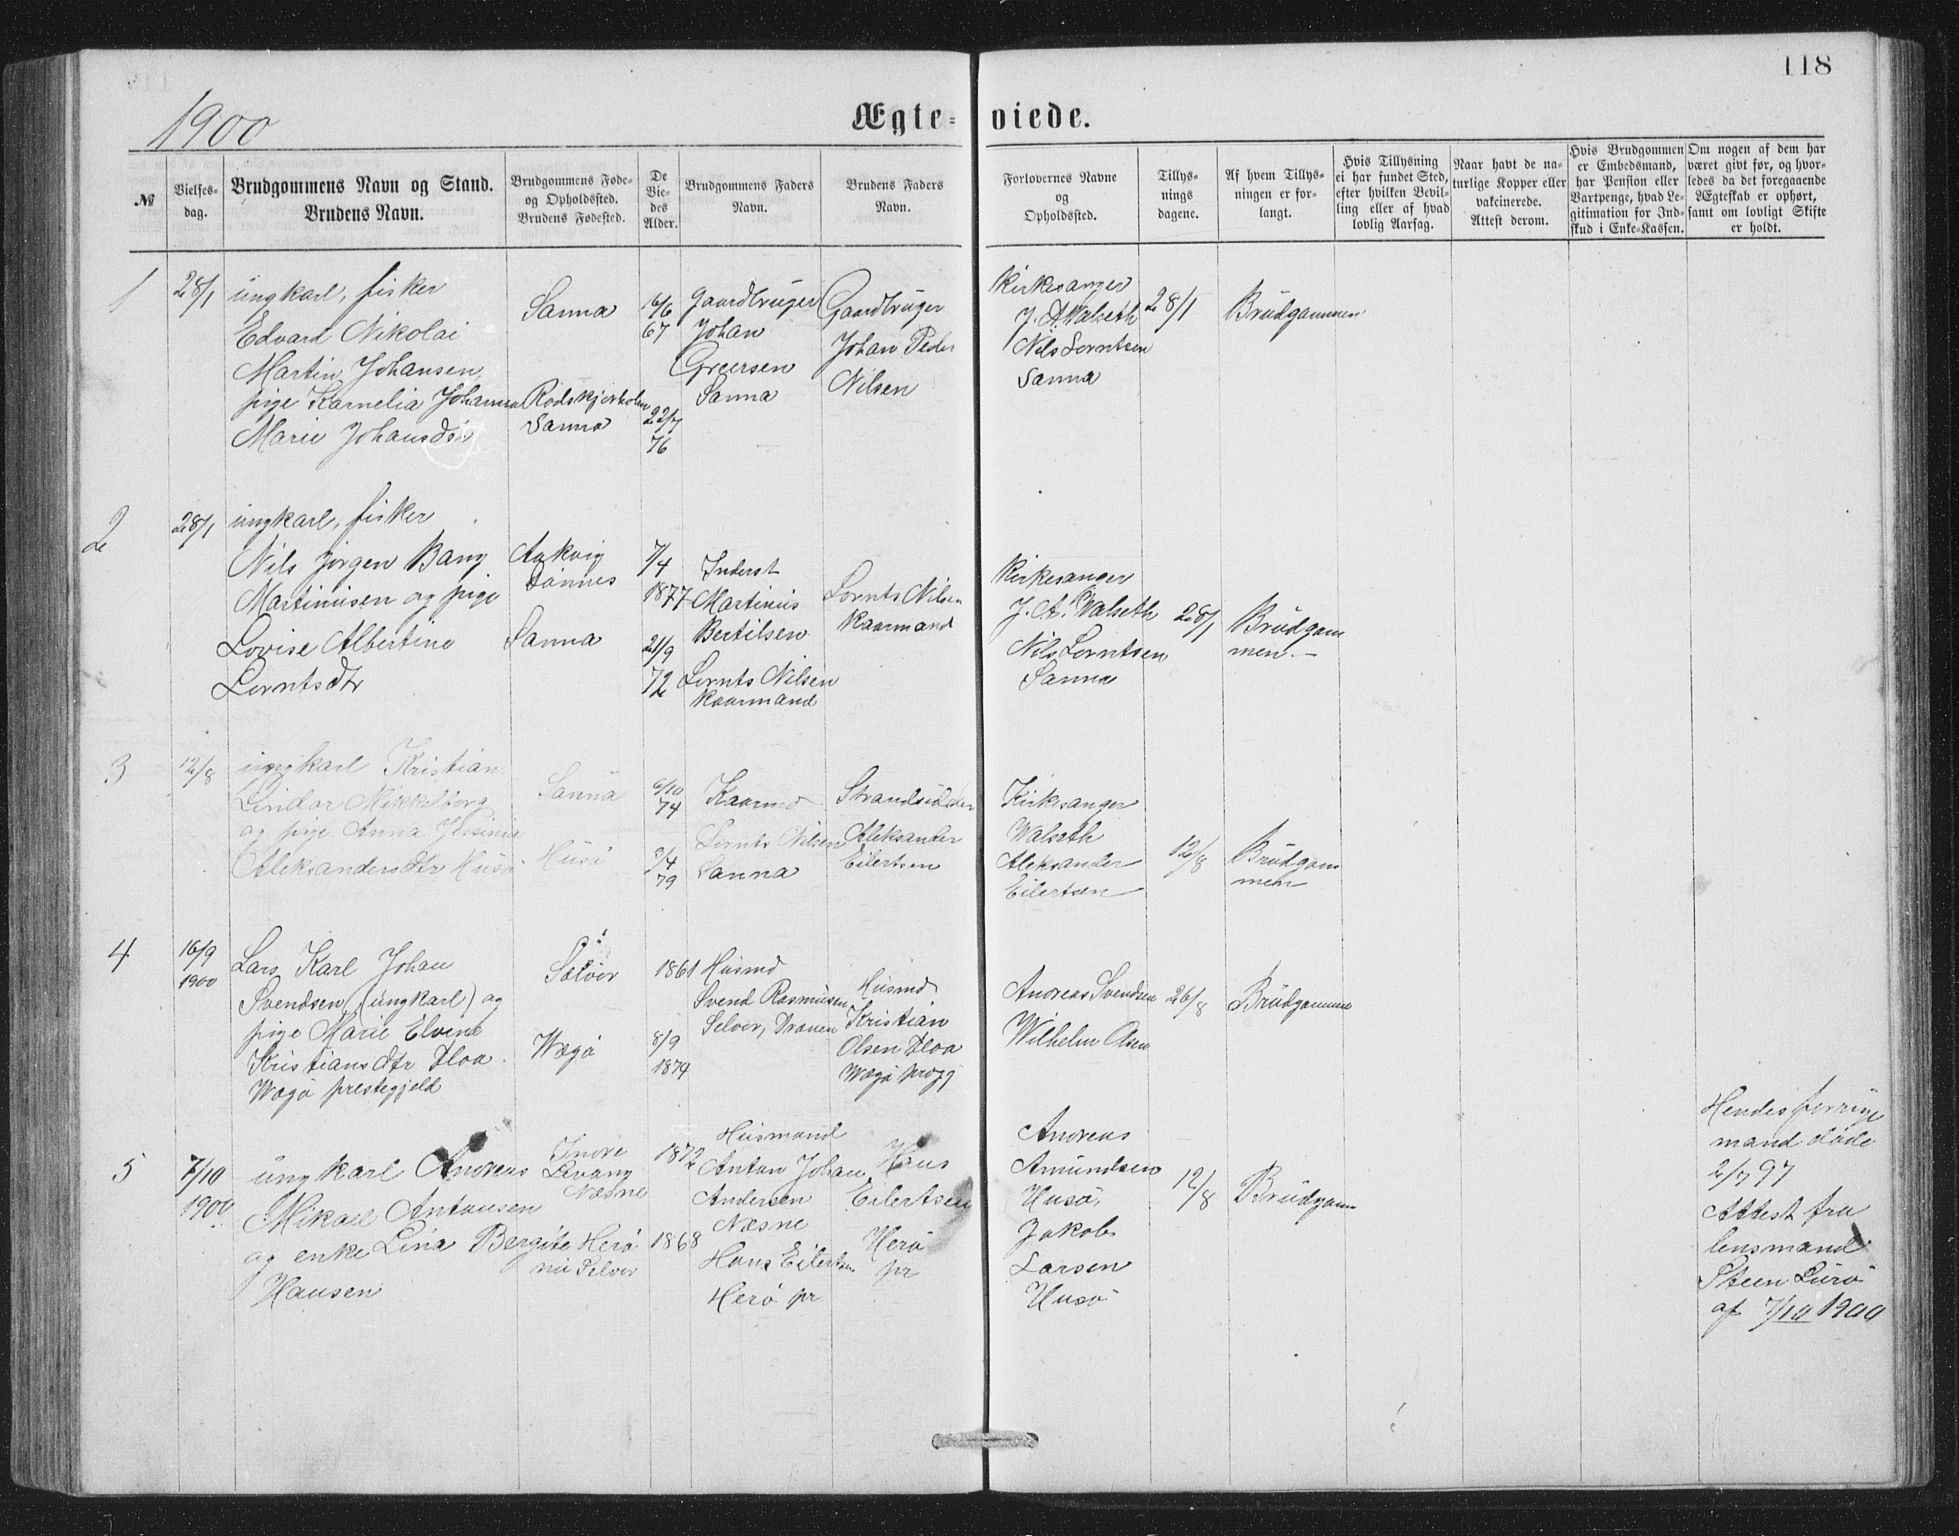 118
1900
Ægte= viede.
№
Vielses-
dag.
Brudgommens Navn og Stand.
Brudens Navn.
Brudgommens Føde-
og Opholdssted.
Brudens Fødested.
De
Vie-
des
Alder.
Brudgommens Faders
Navn.
Brudens Faders
Navn.
Forlovernes Navne
og
Opholdssted.
Tillys-
nings
dagene.
Af hvem Tillys-
ningen er for-
langt.
Hvis Tillysning
ei har fundet Sted,
efter hvilken Bevil-
ling eller af hvad
lovlig Aarsag.
Naar havt de na-
turlige Kopper eller
vakcinerede.
Attest derom.
Hvis Brudgommen
er Embedsmand,
har Pension eller
Vartpenge, hvad Le-
gitimation for Ind-
skud i Enke-Kassen.
Om nogen af dem har
været givt før, og hvor-
ledes da det foregaaende
Ægteskab er ophørt,
samt om lovligt Skifte
er holdt.
1
28/1
ungkarl, fisker
Edvard Nikolai
Martin Johansen
pige Karnelia Johanna
Marie Johansdtr
Sanna
Rodskjærholm
Sanna
16/6
67
22/7
76
Gaardbruger
Johan
Greersen
Sanna
Gaardbruger
Johan Peder
Nilsen
Kirkesanger
J. A. Walseth
Nils Lorntsen
Sanna
28/1
Brudgommen
2
28/1
ungkarl, fisker
Nils Jörgen Bang
Martinusen og pige
Lovise Albertine
Lorntsdtr
Aakvig
Dönnes
Sanna
7/4
1877
21/9
72
Inderst
Martinus
Bertilsen
Lornts Nilsen
Kaarmand
Lornts Nilsen
Kaarmand
Kirkesanger
J. A. Walseth
Nils Lorntsen
Sanna
28/1
Brudgom
men.
3
12/8
ungkarl Kristian
Lindor Mikkelborg
og pige Anna
Aleksandersdtr Husö
Sanna
Husö
6/10
74
9/4
79
Kaarmd
Lornts Nilsen
Sanna
Strandsidder
Aleksander
Eilertsen
Kirkesanger
Walseth
Aleksander
Eilertsen
12/8
Brudgom
men
4
16/9
1900
Lars Karl Johan
Svendsen (ungkarl) og
pige Marie Elvene
Kristiansdtr Floa
Wægö prestegjeld
Selvær
Wægö
1861
8/9
1874
Husmd
Svend Rasmusen
Selvær, Trænen
Husmd
Kristian
Olsen Floa
Wægö prgj
Andreas Svendsen
Wilhelm Olsen
26/8
Brudgommen
5
7/10
1900
ungkarl Andreas
Mikael Antonsen
og enke Lina Bergite
Hansen
Levang
Næsne
Herö
nu Selvær
1872
1868
Husmand
Anton Johan
Andersen
Næsne
Hans Eilertsen
Herö pr
Hans
Eilertsen
Herö
pr
Andreas
Amundsen
Husö,
Jakob
Larsen
Husö
12/8
Brudgom
Hendes forrige
mand döde
2/7 97
Attest fra
lensmand
Steen Lurö
af 7/10 1900